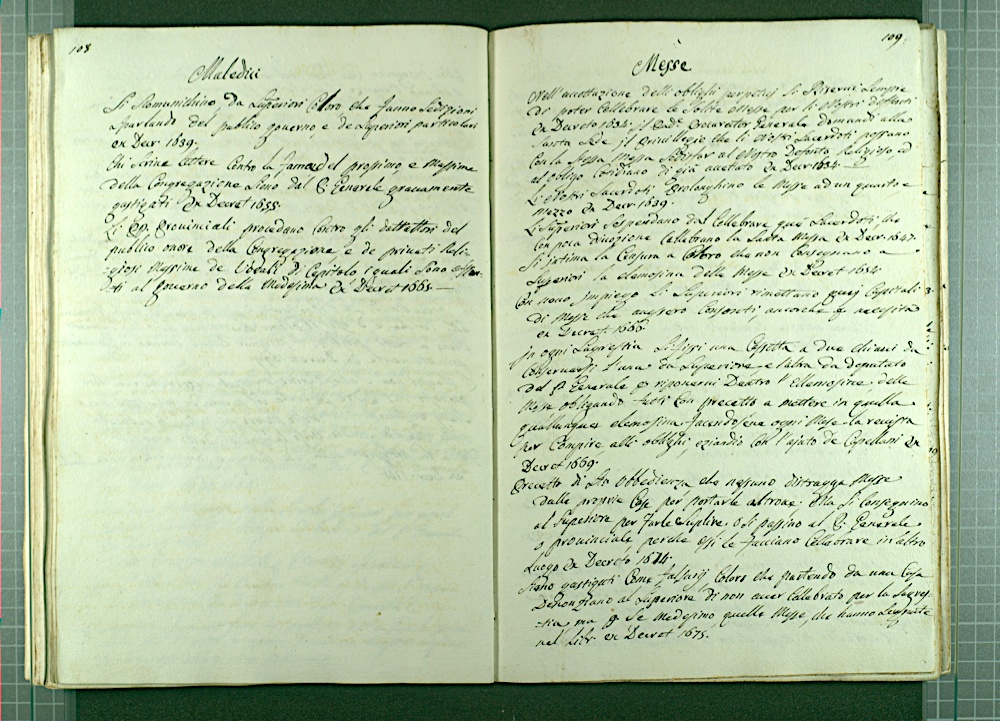 108
Maledici
Si Scomunichino da Superiori Coloro che fanno Sedizioni
Sparlando del publico governo e de Superiori particolari
ex Decr. 1639.
Chi Scrive lettere Contro la fama del prossimo, e Massime
della Congregazione Siino dal P. Generale gravemente
gastigati Ex Decret 1655.
Li PP. Provinciali procedano Contro gli dattrattori del
publico onore della Congregazione e de privati Reli-
giosi Massime de Vocali di Capitolo i quali Sono
al Governo della Medesima Ex Decret 1665.
109.
Messe
Nell'accettazione delli oblighi perpetuj Si Riservi Sempre
di poter Cellebrare le Solite Messe per li Nostri defonti
Ex Decreto 1634. il Procurator Generale domandi alla
Santa Sede il Privillegio che li Nostri Sacerdoti possano
Con la Stessa Messa al Nostro Defonto Religioso, ed
al obligo Cotidiano di già accetato Ex Decr. 1634.
I Nostri Sacerdoti Prolonghino le Messe ad un quarto e
mezzo Ex Decr. 1639.
I Superiori Sospendano dal Cellebrare quei Sacerdoti, che
Con poca divozione Cellebrano la Santa Messa Ex Decr. 1647.
Si intima la Censura a Coloro che non Consegnano a
Superiori la elemosina delle Messe Ex Decret 1654.
Con novo Impiego li Superiori rimettano quej Capitali
di Messe che avessero Consonti, ancorche p necessita
ex Decret 1666.
In ogni Sagrestia una Casetta a due chiavi da
Conservarsi l'una da Superiore e l'altra da deputato
del P. Generale p riponervi Dentro l'Ellemosine delle
Messe obligando tutti Con precetto a mettere in quella
qualunque elemosina facendosene ogni Mese la
per Compire alli oblighi, eziandio Con l'ajuto de Capellani Ex
Decret 1669.
Precetto di Sta Obbedienza che nessuno distragga Messe
dalle proprie Case per portarle altrove. Ma Si Consegnino
al Superiore per farle Suplire o Si passino al P. Generale
o provinciale perche essi le facciano Cellebrare in altro
Luogo Ex Decreto 1674.
Siano gastigati Come falsarij Coloro che partendo da una Casa
al Superiore di non aver Cellebrato per la Sagres-
tia ma p Se Medesimo quelle Messe, che hanno Segnate
nel Libr. ex Decret 1675.